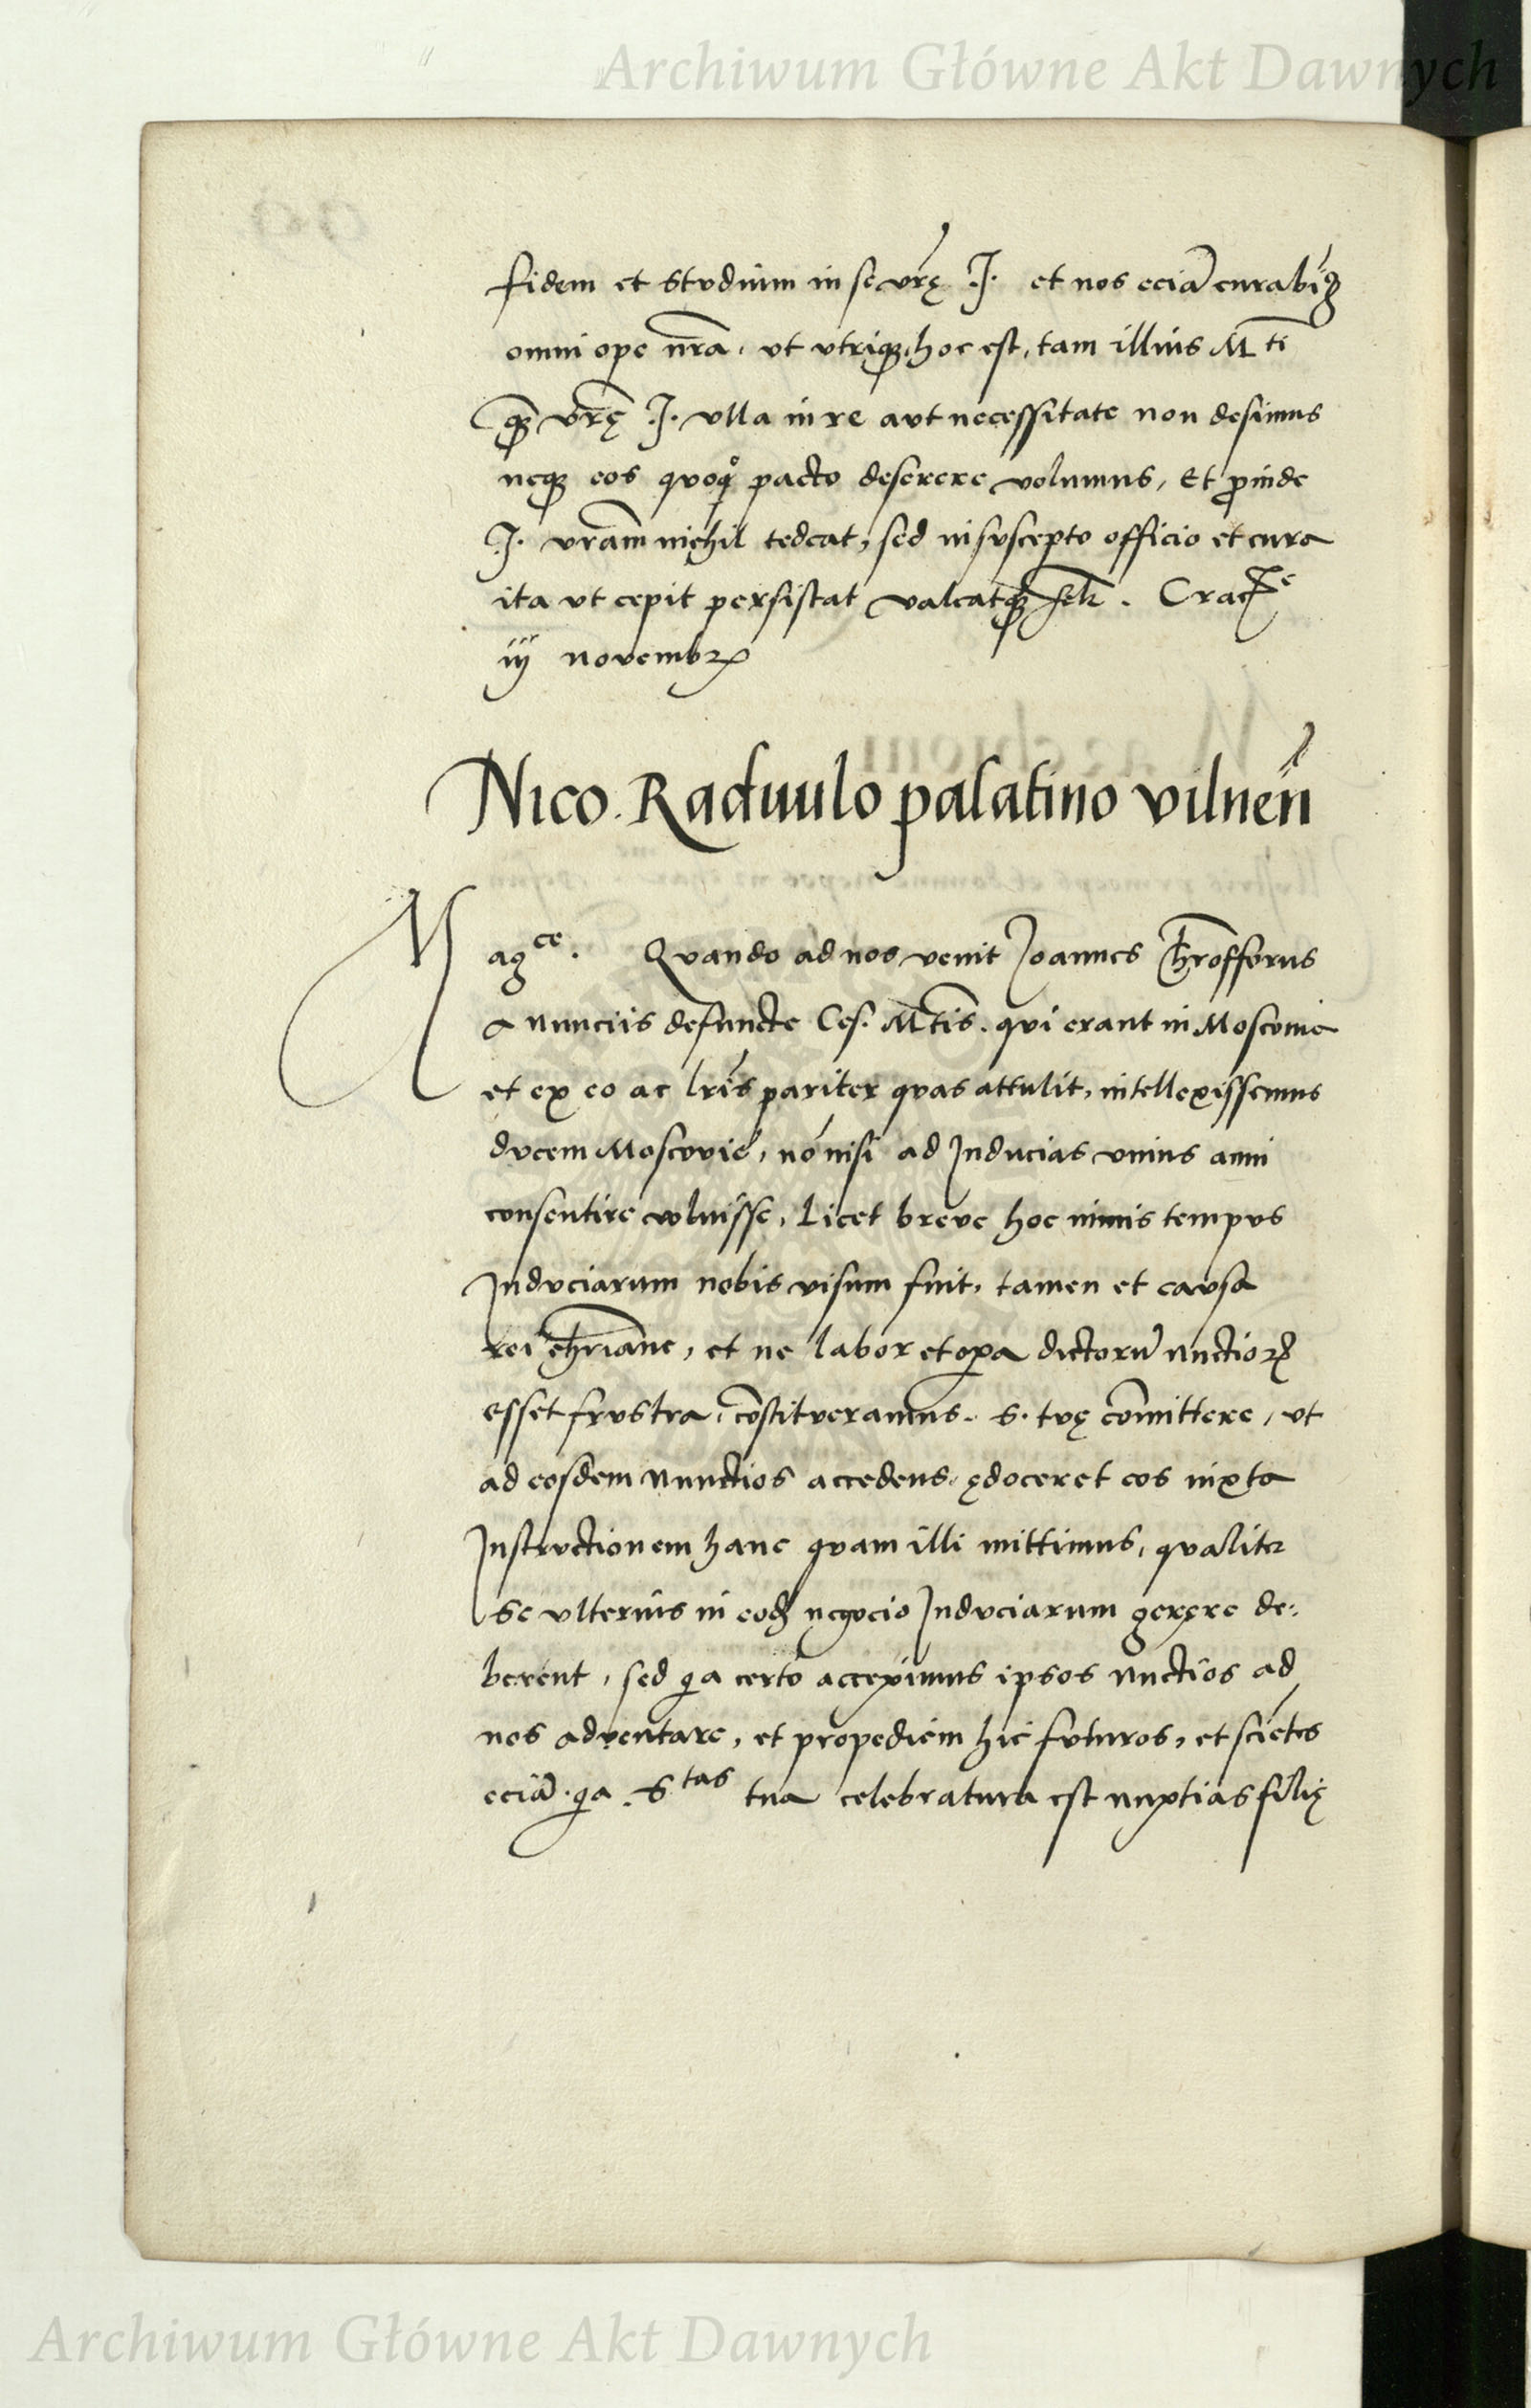 Archiwum Główne Akt Dawnych
fidem et studium in se vrę .I. et nos eciã curabim9
omni ope nrã, ut utriqȝ, hoc est, tam illius Mti
qȝ vrę .I. ulla in re aut necessitate non desimus
neqȝ eos quoqȝ pacto deserere volumus, Et proinde
.I. vram nichil tedeat, sed in suscepto officio et cura
ita ut cepit persistat valeatqȝ felr. Crace
iij novembr
Nico. Radiuulo palatino vilneñ
Magce. Quando ad nos venit Joannes
a nunciis defuncte Ces. Mtis. qui erant in Moscovia
et ex eo ac lris pariter quas attulit, intellexissemus
ducem Moscovie, nõ nisi ad Inducias unius anni
consentire voluisse, Licet breve hoc nimis tempus
Induciarum nobis visum fuit, tamen et causa
rei chriane, et ne labor et opa dictorũ nuctioꝝ
esset frustra, cõstitueramus. S. tuę cõmittere, ut
ad eosdem nunctios accedens, ędoceret eos iuxta
Instructionem hanc quam illi mittimus, qualiter
Se ulterius in eodȝ negocio Induciarum gerere de:
berent, sed qa certo accepimus ipsos nuctios ad
nos adventare, et propediem hic futuros, et sciẽtes
eciã. qa. Stas tua celebratura est nuptias filię
Archiwum Główne Akt Dawnych